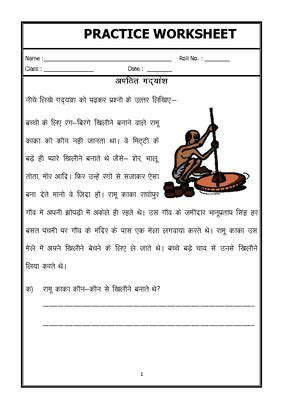 PRACTICE WORKSHEET
Name : Roll No. :
Class : Date :
अपठित गद्यांश
नीचे लिखे गद्यांश को पढ़कर प्रश्नो के उत्तर लिखिए:–
बच्चो के लिए रंग–बिरंगे खिलौने बनाने वाले रामू
काका को कौन नही जानता था। वे मिट्टी के
बड़े ही प्यारे खिलौने बनाते थे जैसे– शेर, भालू
तोता, मोर आदि। फिर उन्हें रंगो से सजाकर ऐसा
बना देते मानो वे जिंदा हो। रामू काका राधोपुर
गाँव मे अपनी झोंपड़ी मे अकेले ही रहते थे। उस गाँव के जमीदार भानूप्रताप सिंह हर
बसंत पंचमी पर गाँव के मंदिर के पास एक मेला लगवाया करते थे। रामू काका उस
मेले मे अपने खिलौने बेचने के लिए ले जाते थे। बच्चे बड़े चाव से उनसे खिलौने
लिया करते थे।
क) रामू काका कौन–कौन से खिलौने बनाते थे?
1